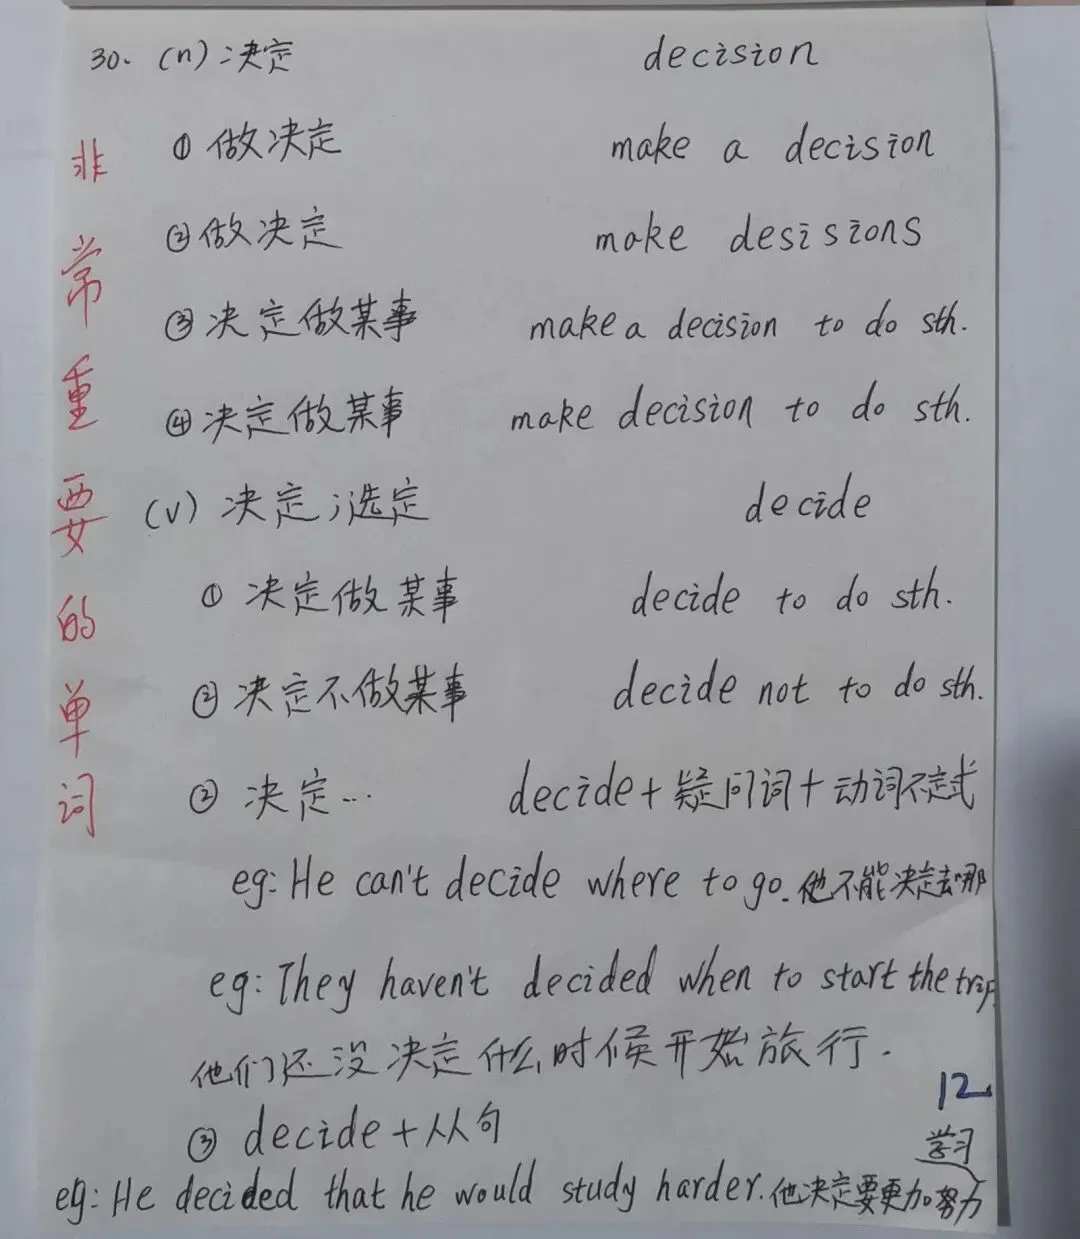 30. (n):决定 decision
① 做决定 make a decision
② 做决定 make desisions
③ 决定做某事 make a decision to do sth.
④ 决定做某事 make decision to do sth.
(v) 决定;选定 decide
① 决定做某事 decide to do sth.
② 决定不做某事 decide not to do sth.
② 决定… decide+疑问词+动词不定式
eg: He can't decide where to go. 他不能决定去哪
eg: They haven't decided when to start the trip.
他们还没决定什么时候开始旅行.
③ decide+从句
eg: He decided that he would study harder. 他决定要更加努力
学习
12
非常重要的单词